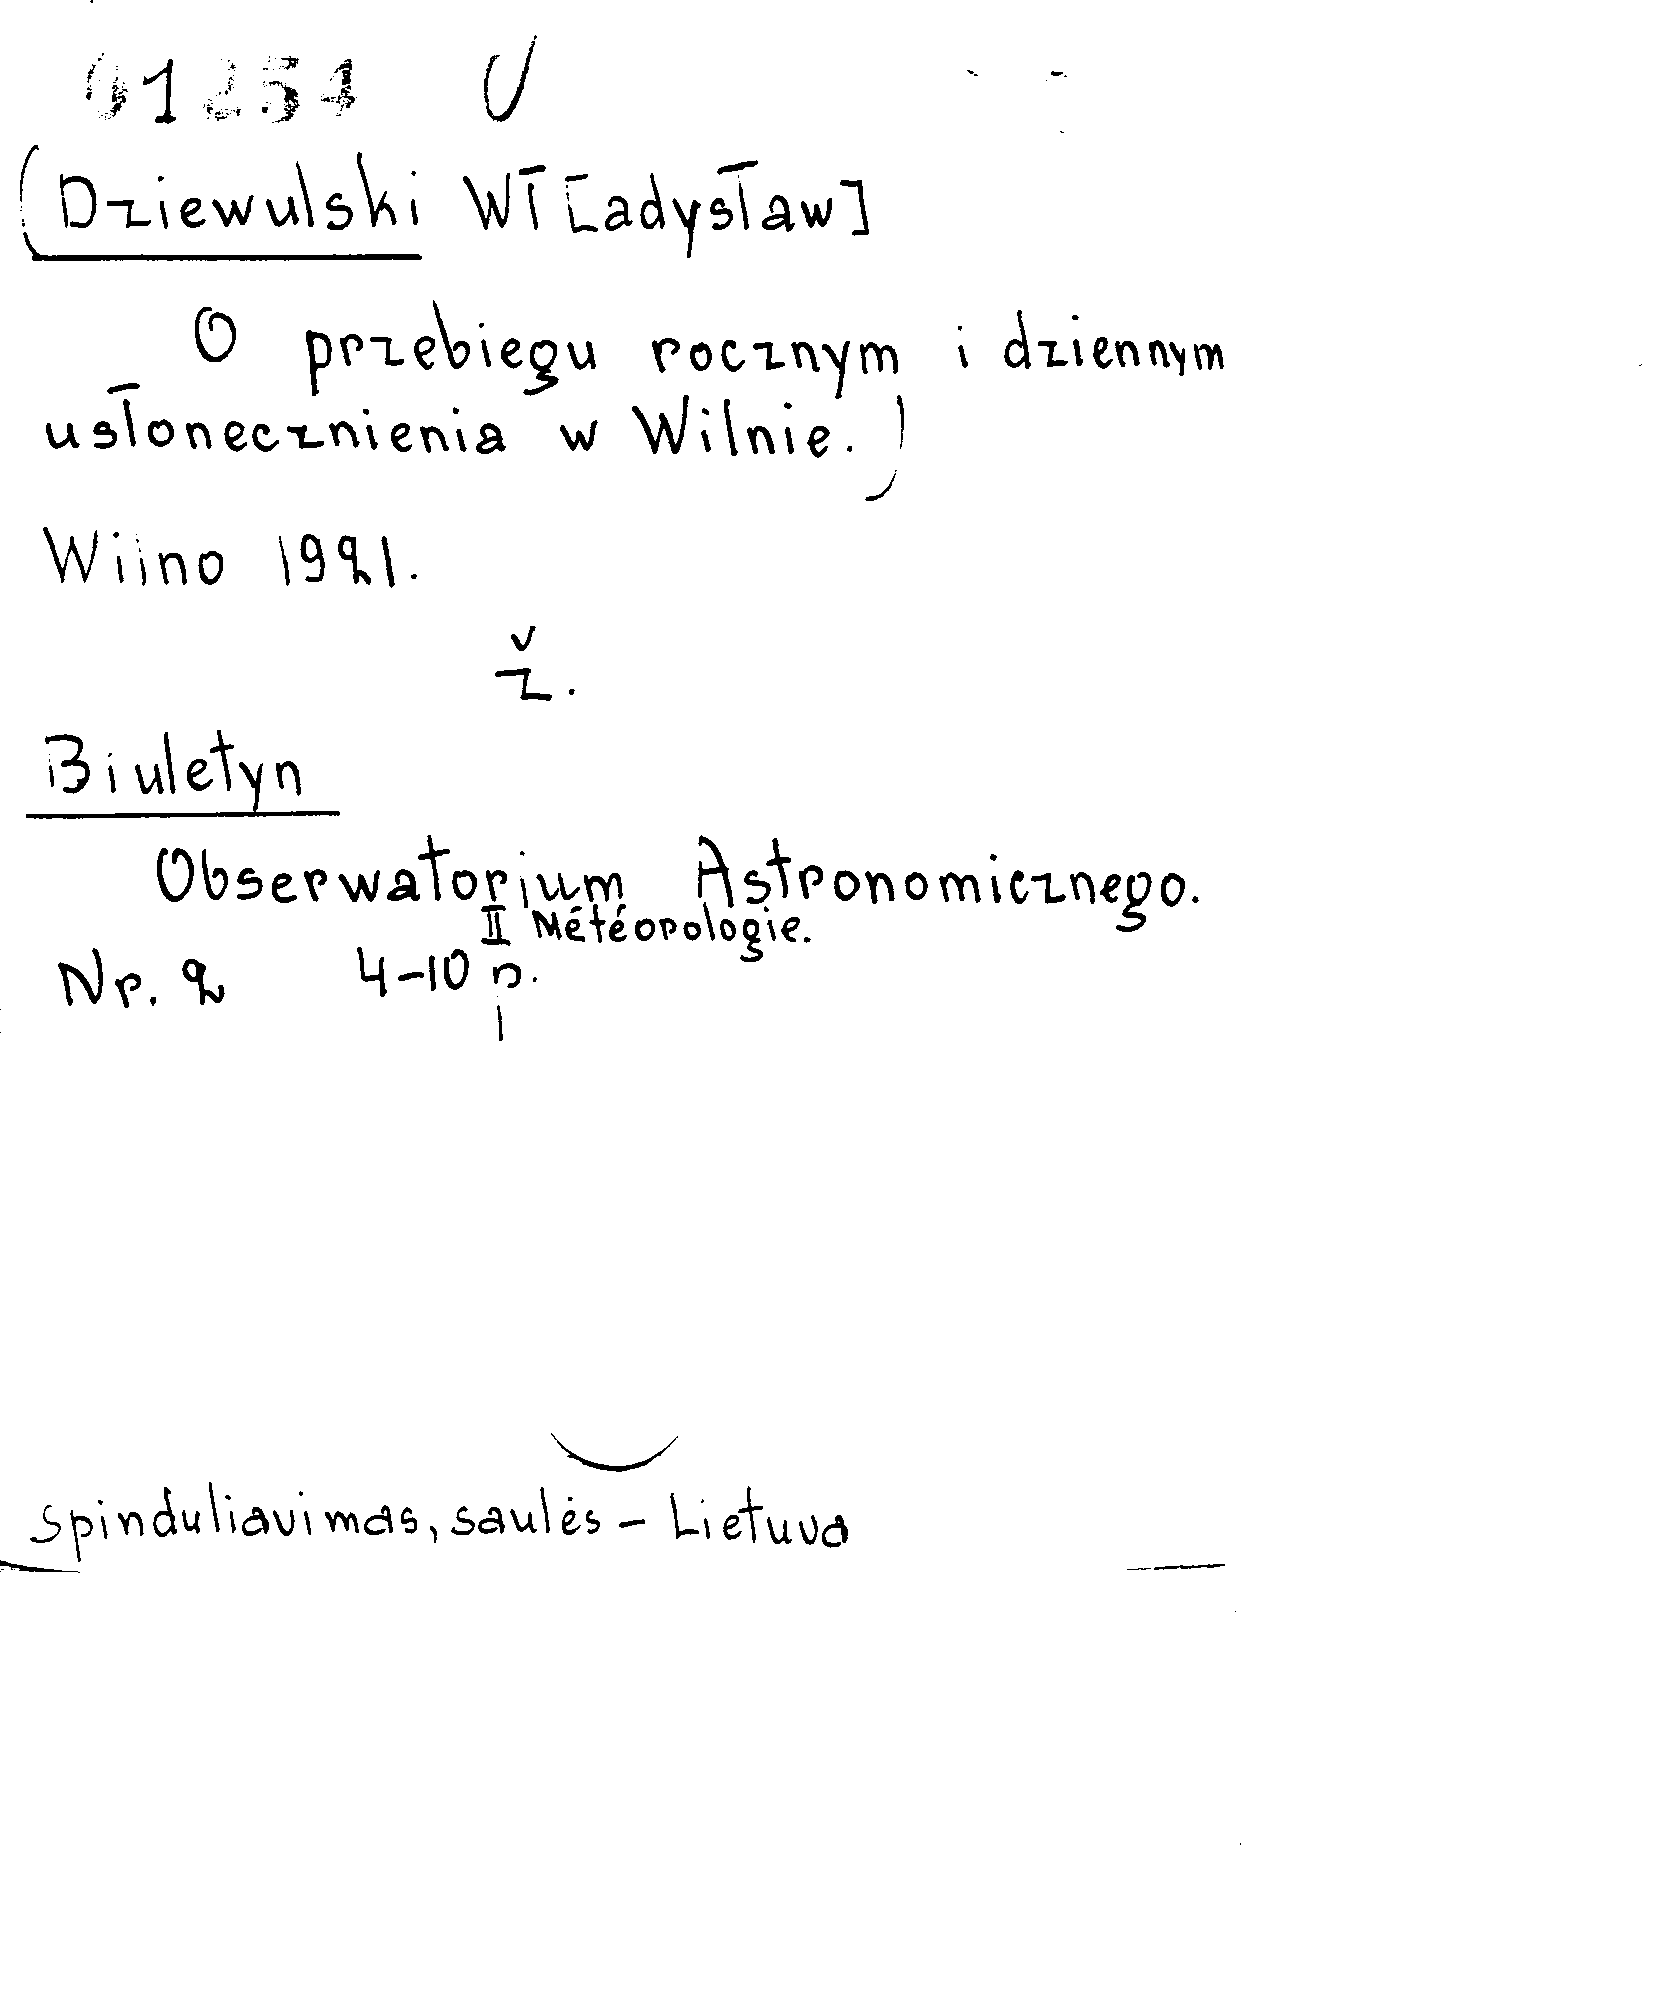 01254 U
(Dziewulski Wł[adysław]
O przebiegu rocznym i dziennym
usłonecznienia w Wilnie.)
Wilno 1921.
ž.
Biuletyn
Obserwatorium Astronomicznego.
II Météorologie.
Nr. 2 4-10 p.
Spinduliavimas, saulės - Lietuva